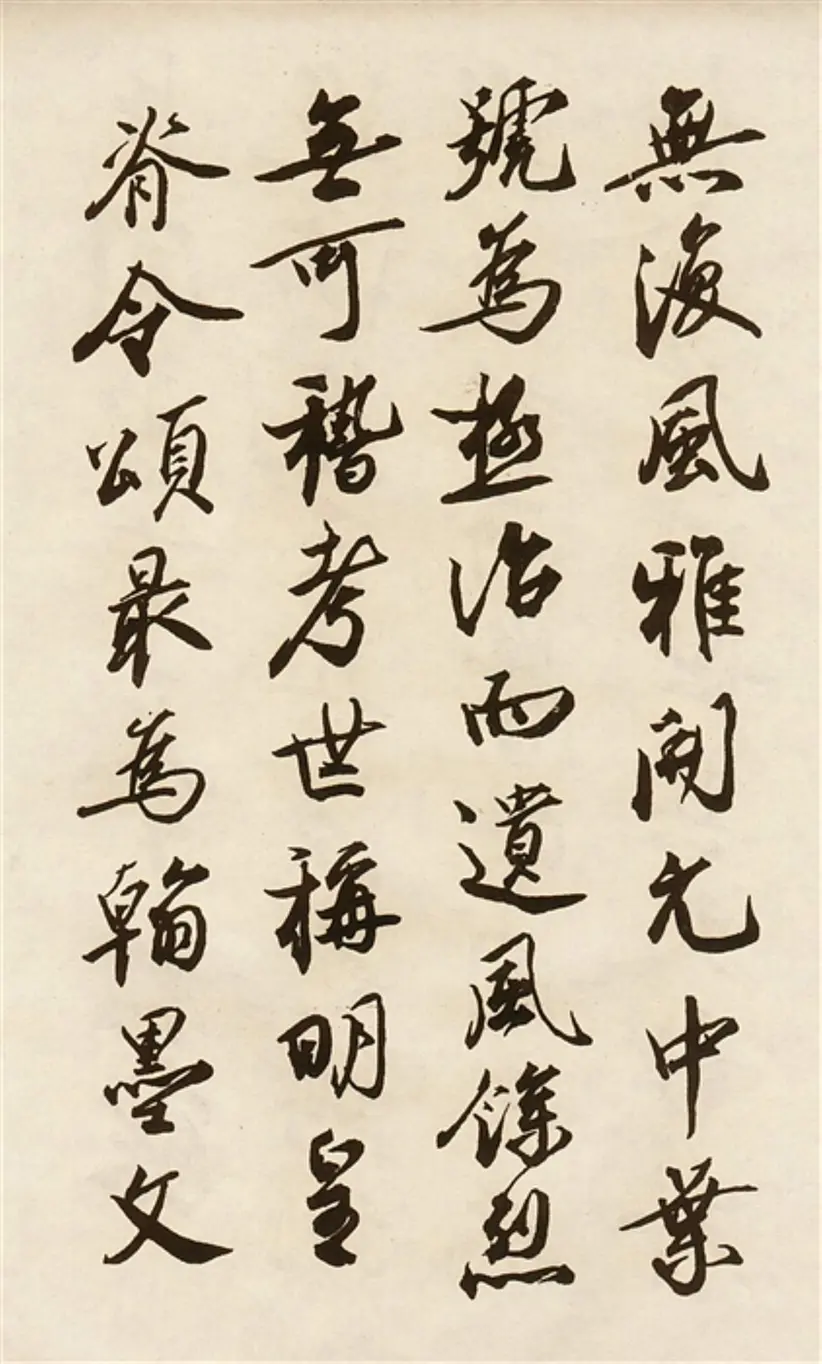 無海風雅開元中業
號為極治而遺風餘烈
無可稽考世稱明皇
脊令頌最為翰墨文